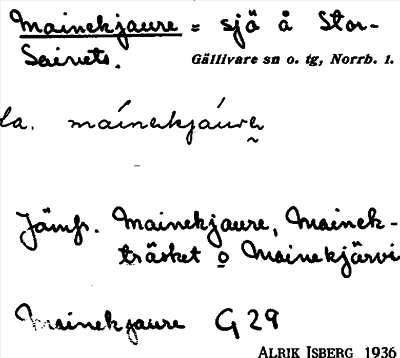 Mainekjaure = sjä å Stor-
Saivets.
Gällivare sn o. tg, Norrb. l.
la. máinekjáure
Jämfr. Mainekjaure, Mainek-
träsket o Mainekjärvi
Mainekjaure G 29
ALRIK ISBERG 1936